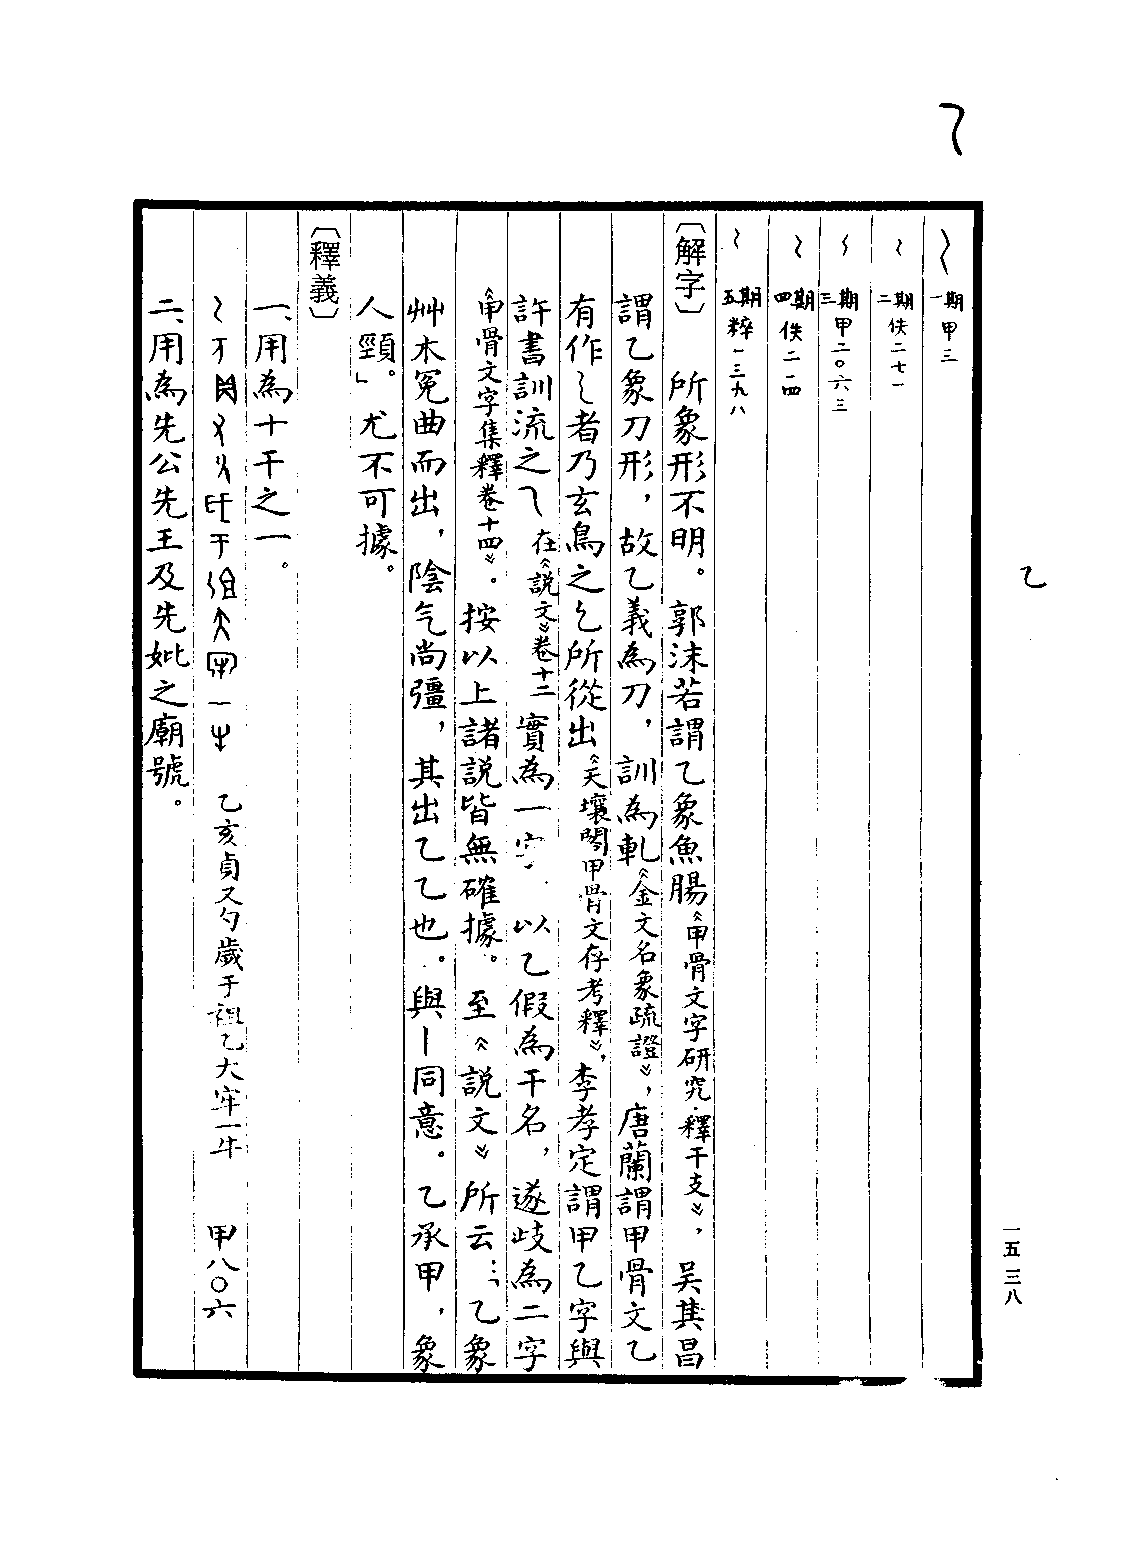 乙
一期 甲三
二期 佚二七一
三期 甲二〇六三
四期 佚二一四
五期 粹一三九八
〔解字〕 所象形不明。郭沫若謂乙象魚腸《甲骨文字研究·釋干支》,吴其昌
謂乙象刀形,故乙義為刀,訓為軋《金文名象疏證》,唐蘭謂甲骨文乙
有作乁者乃玄鳥之乞所從出《天壤閣甲骨文存考釋》,李孝定謂甲乙字與
許書訓流之乁在《說文》卷十二實為一字 以乙假為干名,遂歧為二字
《甲骨文字集釋卷十四》。按以上諸說皆無確據。至《說文》所云:「乙象
艸木冤曲而出,陰气尚彊,其出乙乙也。與丨同意。乙承甲,象
人頸。」尤不可據。
〔釋義〕
一、用為十干之一。
乙亥貞又勺歲于祖乙大牢一牛 甲八〇六
二、用為先公先王及先妣之廟號。
乙
一五三八